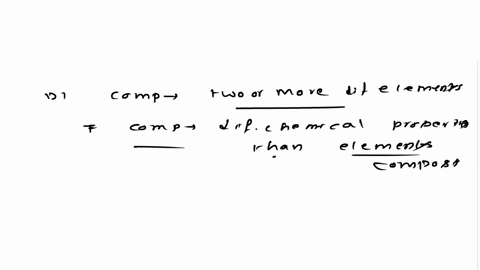 D) comp→ two or more dif elements
F comp→ dif. chemical properties
than elements
compost